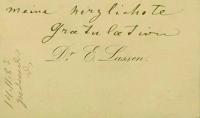 meine herzlichste
Gratulation
Dr. E. Lassen.